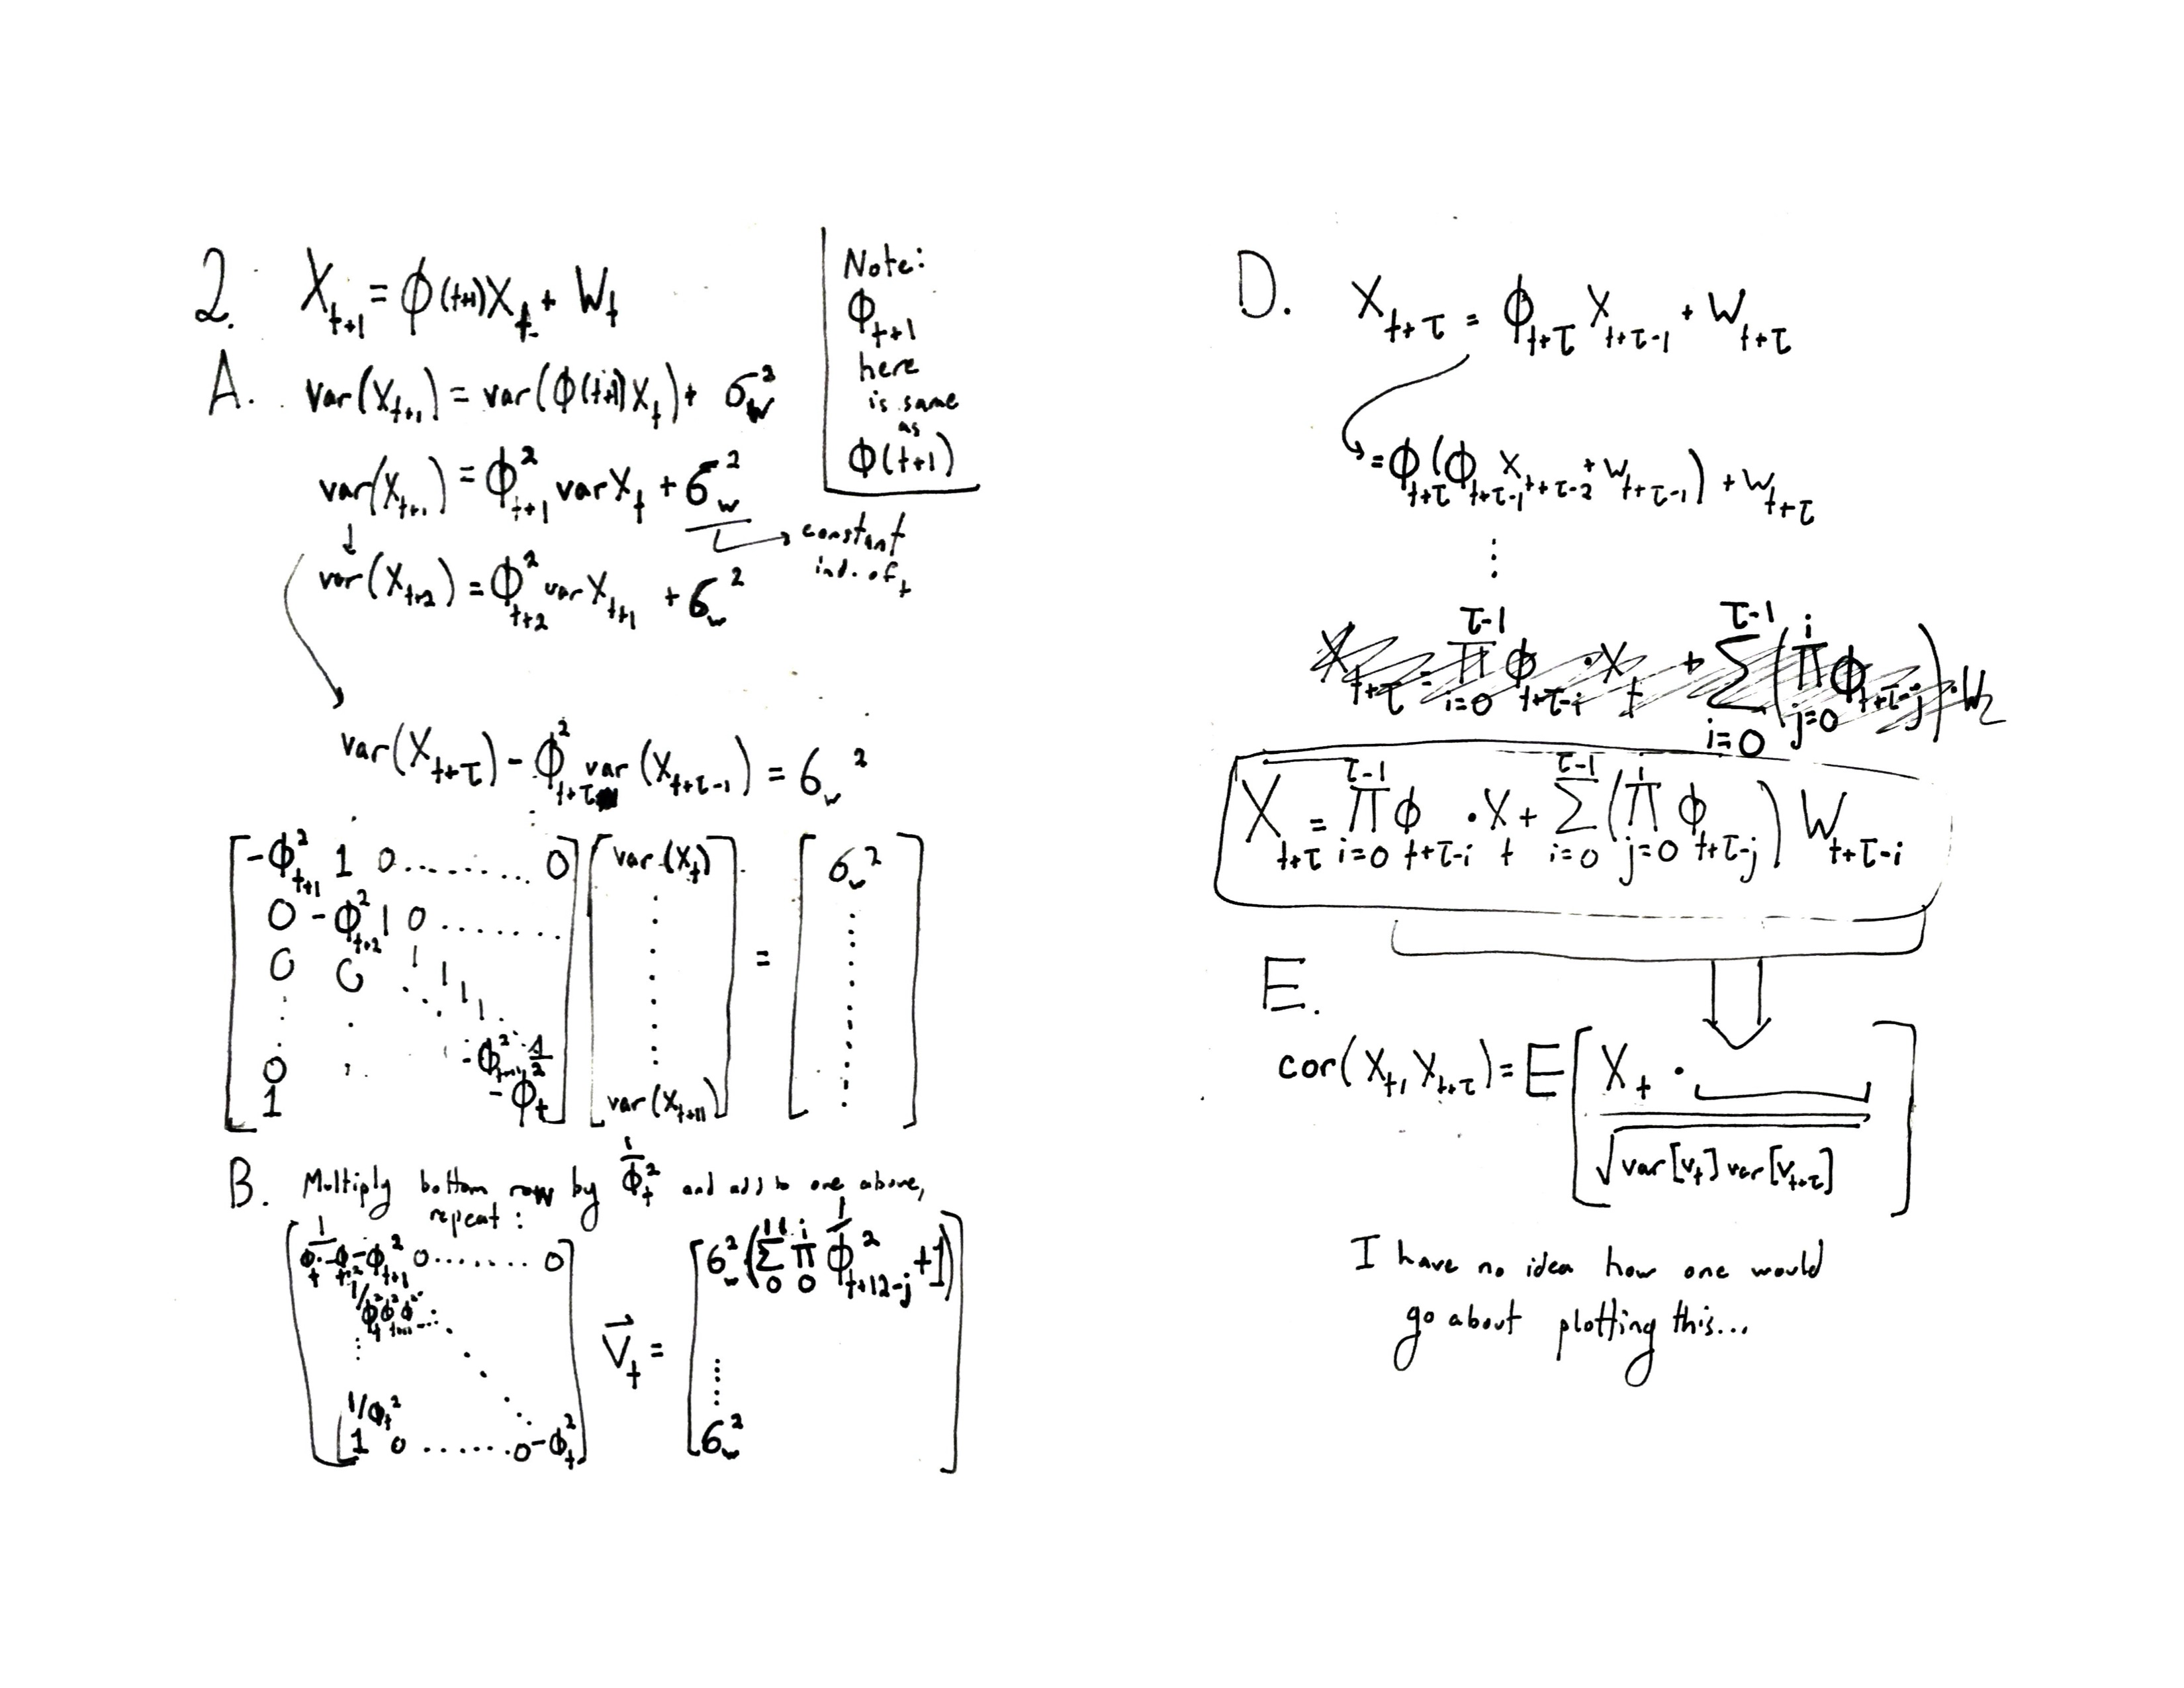 2. X_{t+1} = ϕ(t+1)X_t + W_t
Note:
ϕ_{t+1}
here
is same
as
ϕ(t+1)
A. var(X_{t+1}) = var(ϕ(t+1)X_t) + σ_w^2
var(X_{t+1}) = ϕ_{t+1}^2 var X_t + σ_w^2
→ constant
ind. of t
var(X_{t+2}) = ϕ_{t+2}^2 var X_{t+1} + σ_w^2
var(X_{t+τ}) - ϕ_{t+τ}^2 var(X_{t+τ-1}) = σ_w^2
[-ϕ_{t+1}^2 1 0........ 0] [var(X_t)] [σ_w^2]
0 -ϕ_{t+2}^2 1 0 ........
0 0
=
0
1 -ϕ_t var(X_{t+11})
B. Multiply bottom row by 1/ϕ_t^2 and add to one above,
repeat:
0....... 0 σ_w^2 (∑_0^{11} ∏_0^i 1/ϕ_{t+12-j}^2 + 1)
V_t =
1/ϕ_t^2
1 0 .......0 -ϕ_t^2 σ_w^2
D. X_{t+τ} = ϕ_{t+τ} X_{t+τ-1} + W_{t+τ}
= ϕ_{t+τ}(ϕ_{t+τ-1} X_{t+τ-2} + W_{t+τ-1}) + W_{t+τ}
⋮
X_{t+τ} = ∏_{i=0}^{τ-1} ϕ_{t+τ-i} · X_t + ∑_{i=0}^{τ-1} (∏_{j=0}^{i} ϕ_{t+τ-j}) · W
X_{t+τ} = ∏_{i=0}^{τ-1} ϕ_{t+τ-i} · X_t + ∑_{i=0}^{τ-1} (∏_{j=0}^{i} ϕ_{t+τ-j}) W_{t+τ-i}
E.
cor(X_t, X_{t+τ}) = E[X_t ·
√var[v_t] var[v_{t+τ}]]
I have no idea how one would
go about plotting this...